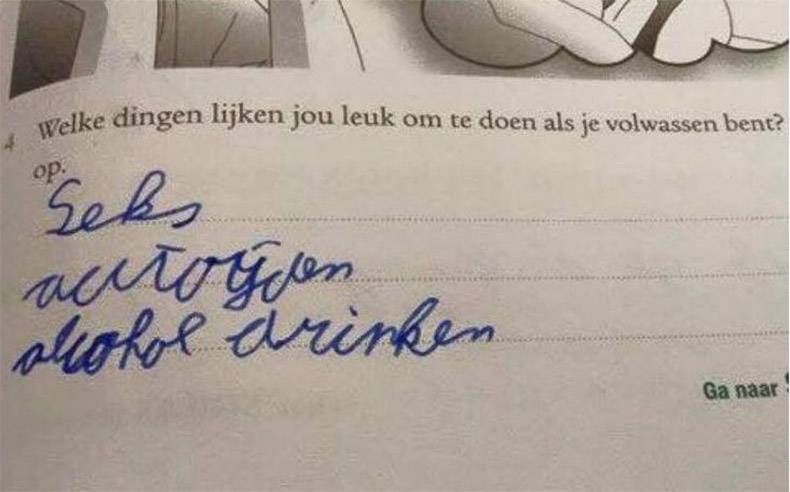 4 Welke dingen lijken jou leuk om te doen als je volwassen bent?
op.
Seks
autorijden
alcohol drinken
Ga naar